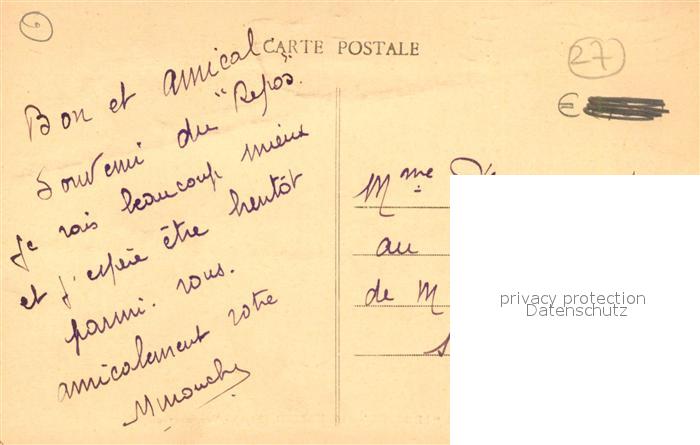 6
CARTE POSTALE
27
€
Bon et amical
souvenir du "Repos".
Je vais beaucoup mieux
et j'espère être bientôt
parmi vous.
amicalement votre
Mmouche
Mme
au
de M
privacy protection
Datenschutz